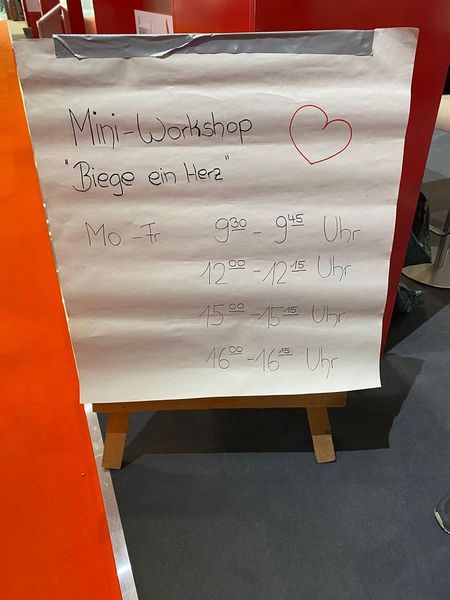 Mini-Workshop
"Biege ein Herz"
Mo. - Fr. 9³⁰ - 9⁴⁵ Uhr
12⁰⁰ - 12¹⁵ Uhr
15⁰⁰ - 15¹⁵ Uhr
16⁰⁰ - 16¹⁵ Uhr